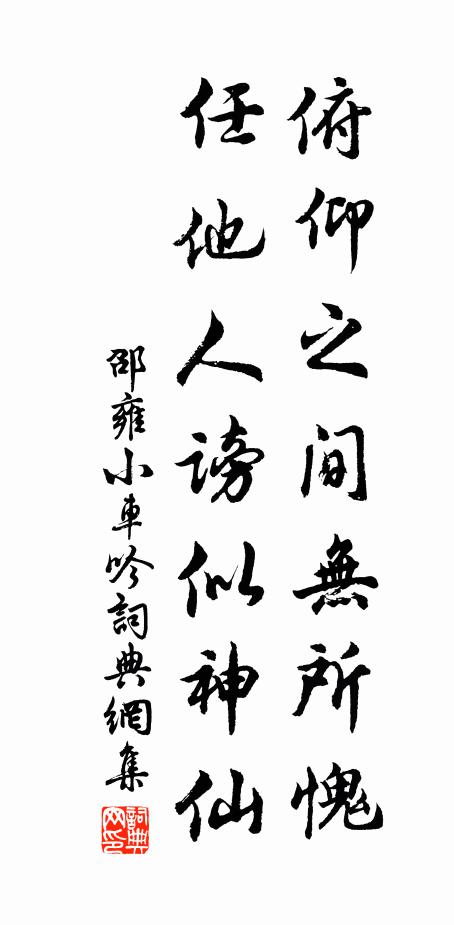 俯仰之間無所愧
任他人謗似神仙
邵雍小車吟詞典網集
詞典网印